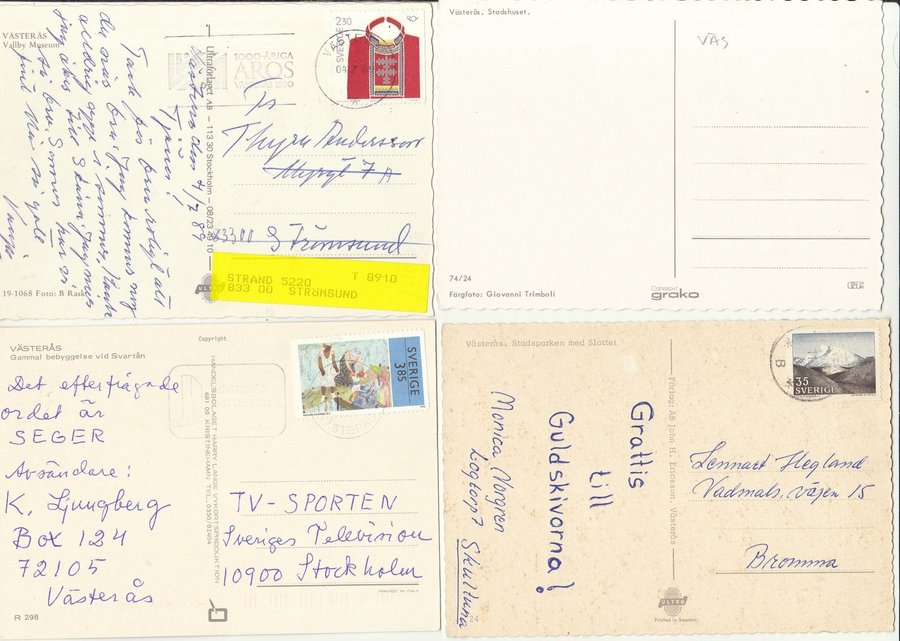 VÄSTERÅS
Vallby Museum
Tack för
du mår bra. Jag kommer nog
aldrig
till
bra.
Västerås den 4/7 89
Tjänare!
Ultraförlaget AB – 113 30 Stockholm – 08/23
19-1068 Foto: B Rask
1000-ÅRIGA
AROS
SVERIGE
2.30
Thyra Andersson
7 A
833 00 Strömsund
STRAND 5220 T 8910
833 00 STRÖMSUND
Västerås, Stadshuset.
VÄS
74/24
Färgfoto: Giovanni Trimboli
Copyright
grako
VÄSTERÅS
Gammal bebyggelse vid Svartån
Copyright
Det efterfrågade
ordet är
SEGER
Avsändare:
K. Ljungberg
Box 124
72105
Västerås
R 298
HANDELSBOLAGET HARRY LANGE VYKORTSPRODUKTION
681 00 KRISTINEHAMN TEL. 0550/82504
SVERIGE
3.85
TV-SPORTEN
Sveriges Television
10900 Stockholm
PRINTED IN ITALY
Västerås, Stadsparken med Slottet
Grattis
till
Guldskivorna!
Monica Norgren
Logtorp 7
Förlag: AB John H. Ericsson, Västerås
35
SVERIGE
B
Lennart Hegland
Vadmalsvägen 15
Bromma
ULTRA
Printed in Sweden
24